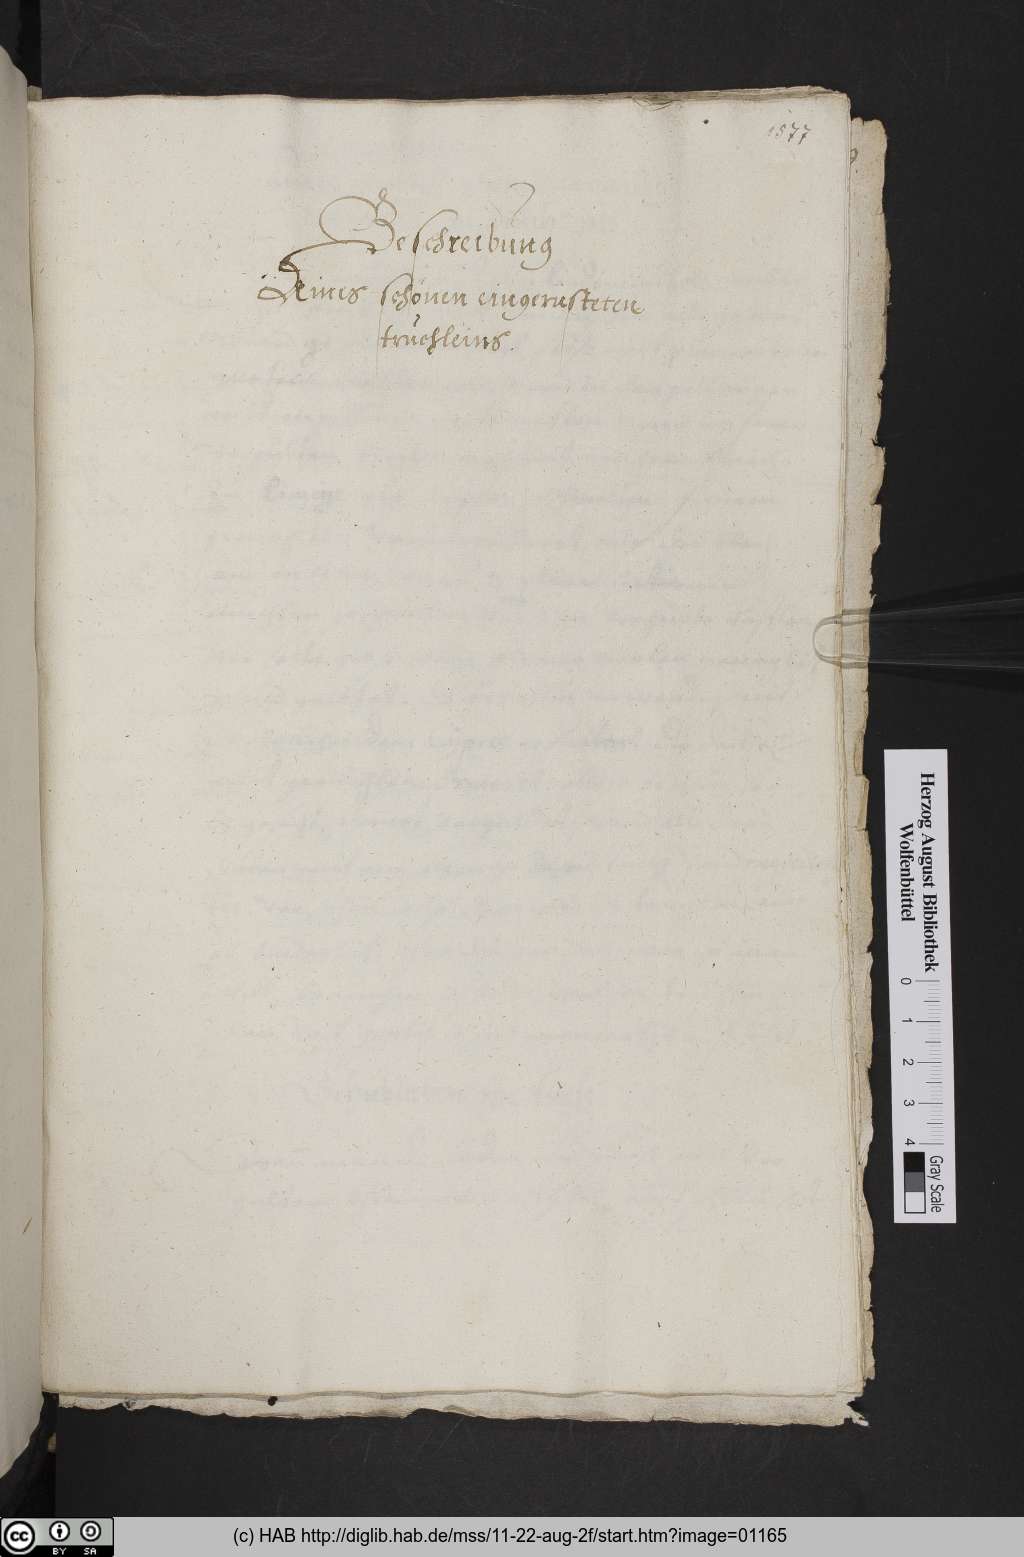 1577
Beschreibung
Eines schönen eingerüsteten
trüchleins.
Herzog August Bibliothek
Wolfenbüttel
0 1 2 3 4
Gray Scale
cc BY SA
(c) HAB http://diglib.hab.de/mss/11-22-aug-2f/start.htm?image=01165